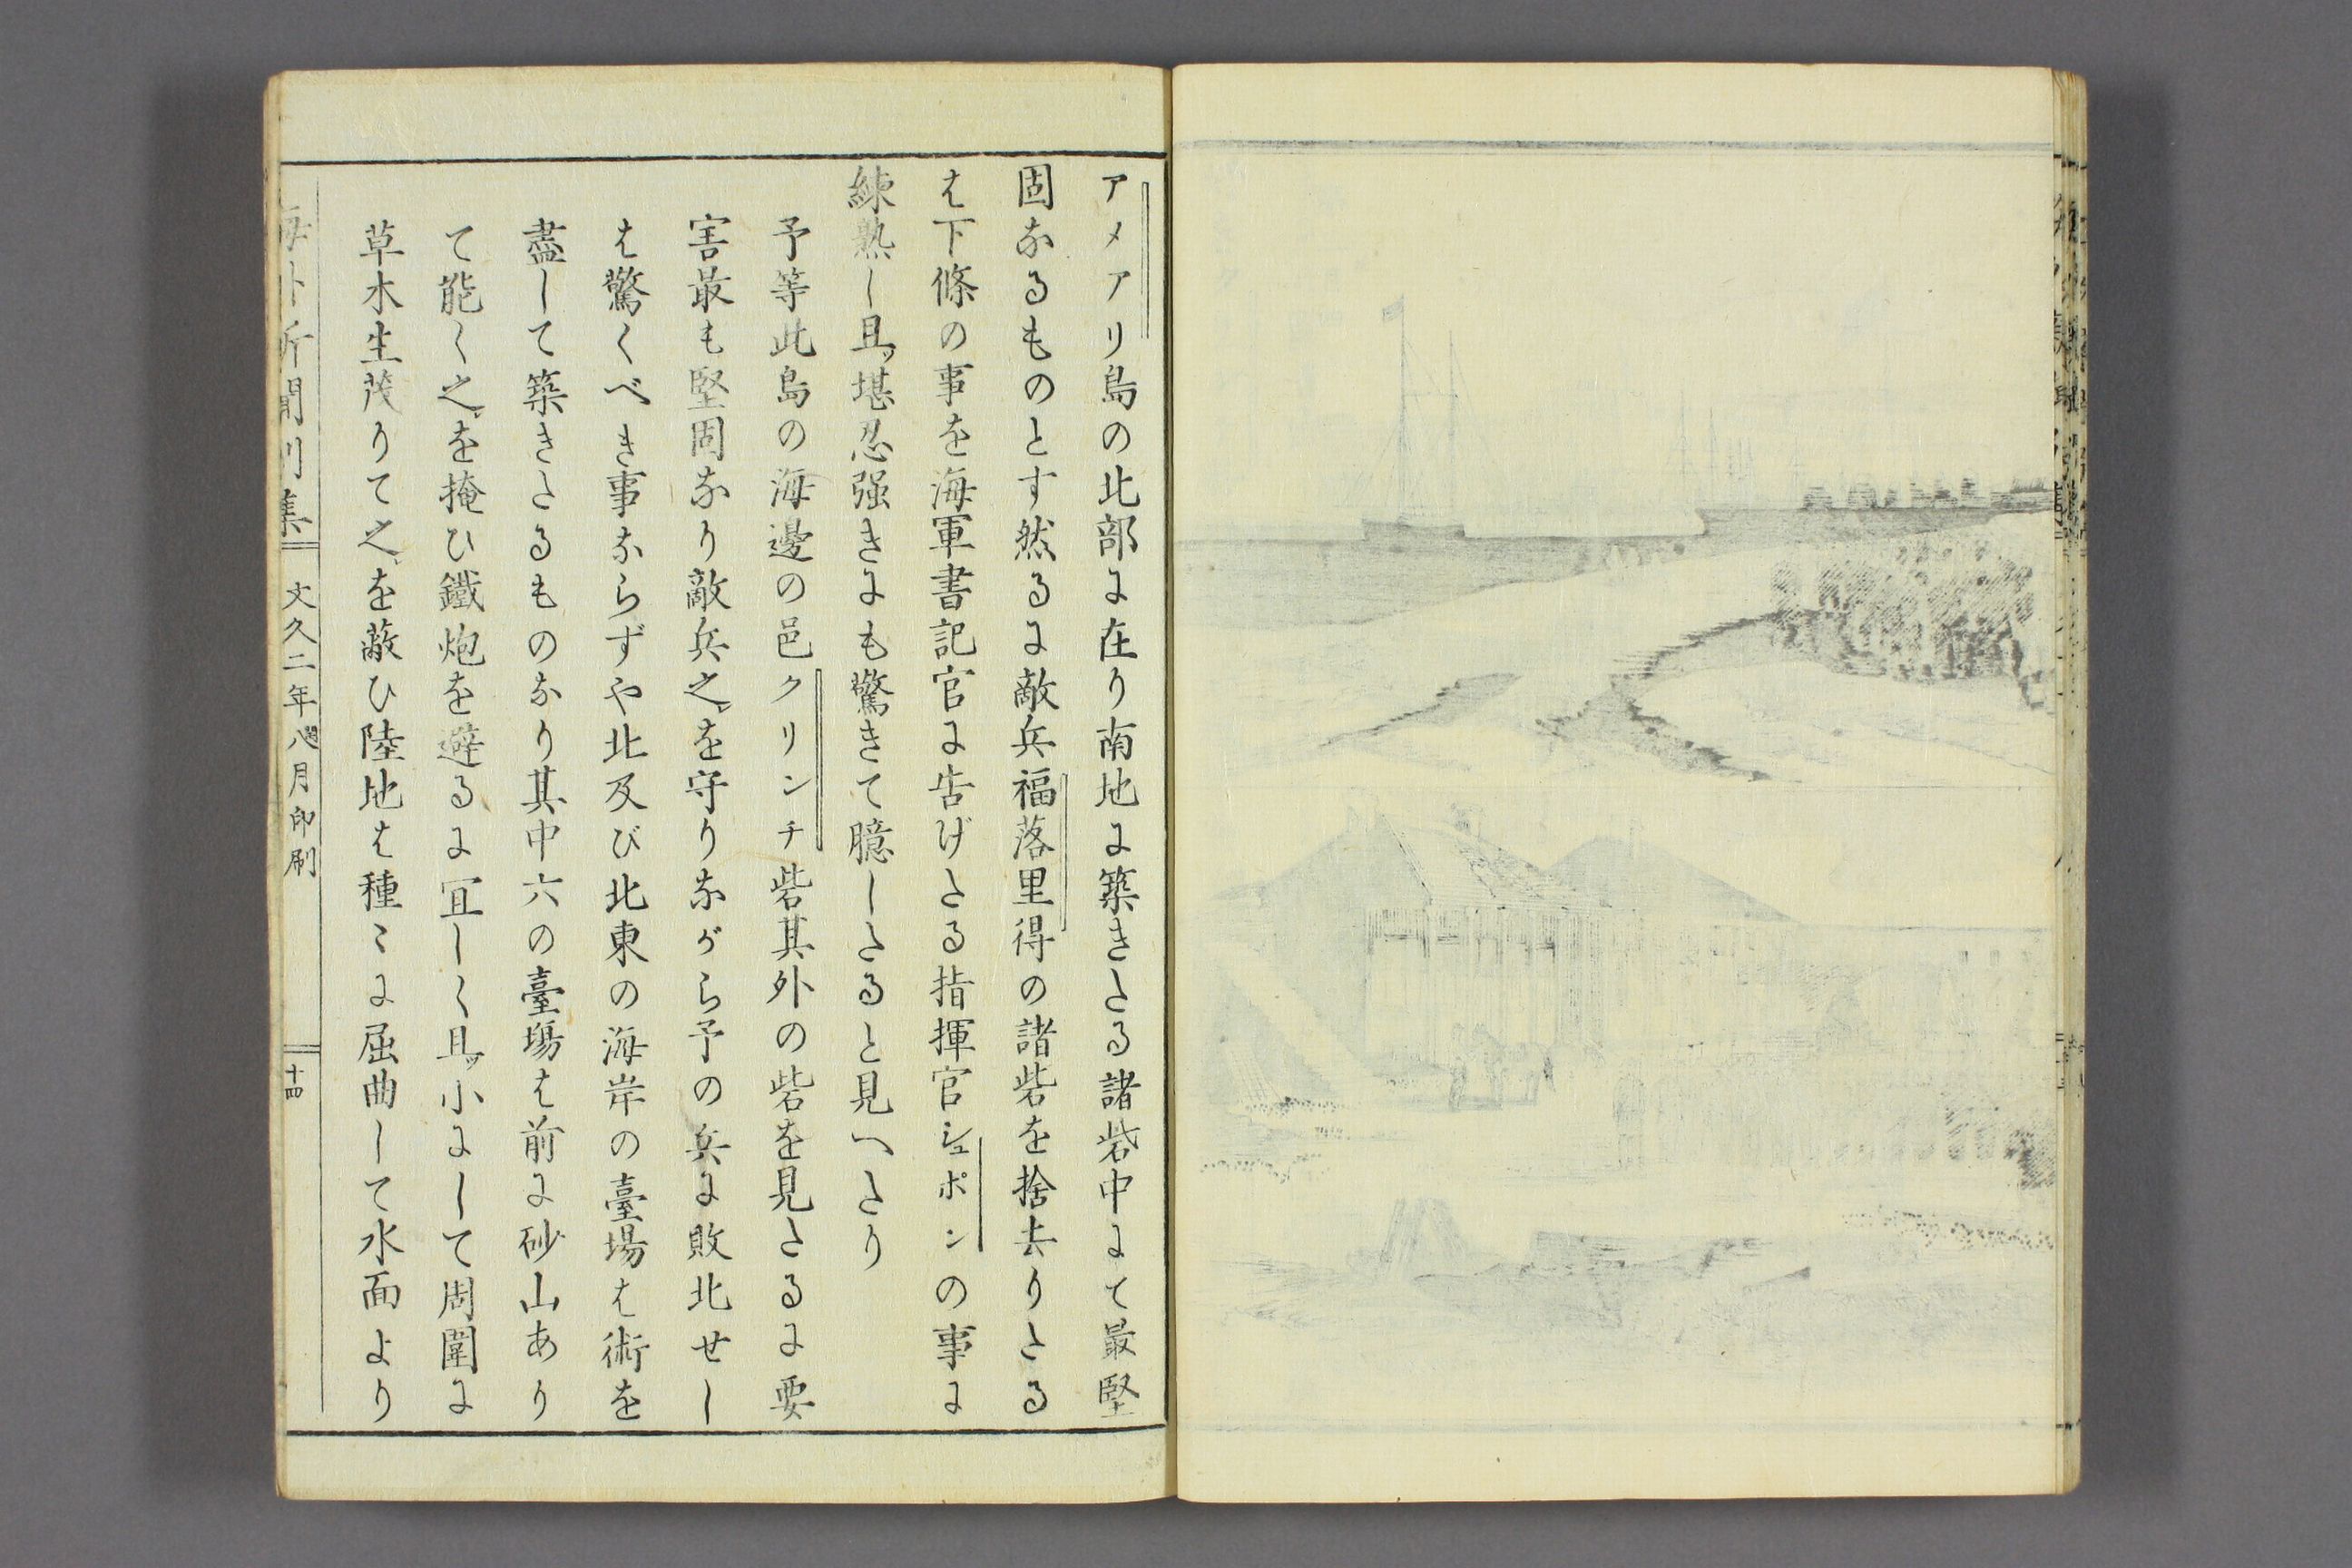 アメアリ島の北部に在り南地に築きたる諸砦中にて最堅
固なるものとす然るに敵兵福落里得の諸砦を捨去りたる
は下條の事を海軍書記官に告げたる指揮官シェポンの事に
練熟し且ツ堪忍强きにも驚きて臆したると見へたり
予等此島の海邊の邑クリンチ砦其外の砦を見たるに要
害最も堅固なり敵兵之を守りながら予の兵に敗北せし
は驚くべき事ならずや北及び北東の海岸の臺場は術を
盡して築きたるものなり其中六の臺場は前に砂山あり
て能く之を掩ひ鐵炮を避るに宜しく且ツ小にして周圍に
草木生茂りて之を蔽ひ陸地は種〻に屈曲して水面より
文久二年閏八月印刷
十四